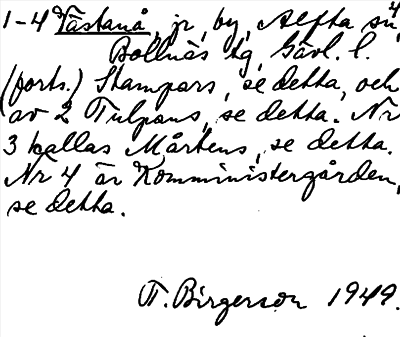 1-4 Västanå, jr, by, Alfta sn, 4
Bollnäs tg, Gävl. l.
(forts.) Stampars, se detta, och
av 2 Tulpans, se detta. Nr
3 kallas Mårtens, se detta.
Nr 4 är Komministergården,
se detta.
T. Birgerson 1949.